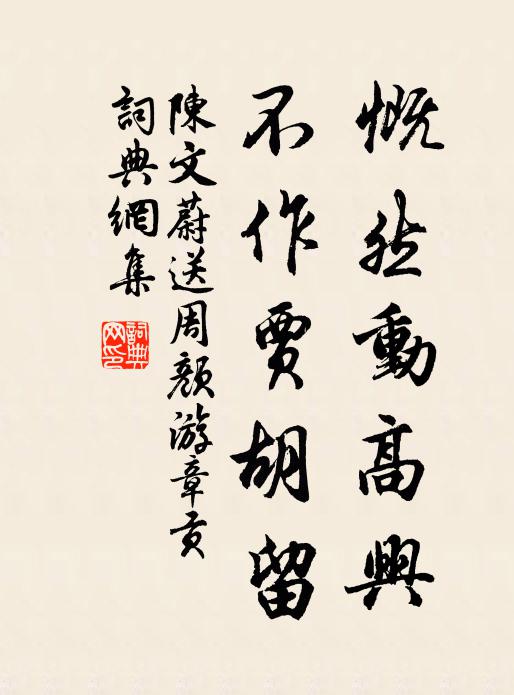 慨然動高興
不作賈胡留
陳文蔚送周顏游章貢
詞典網集
詞典網印